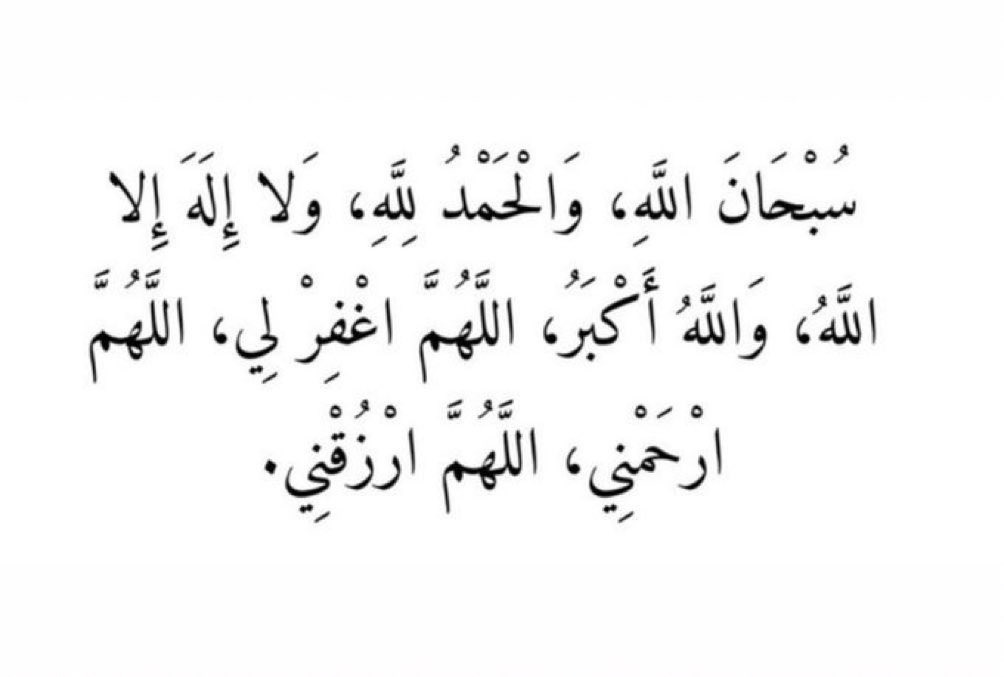 سُبْحَانَ اللَّهِ، وَالْحَمْدُ لِلَّهِ، وَلا إِلَهَ إِلا
اللَّهُ، وَاللَّهُ أَكْبَرُ، اللَّهُمَّ اغْفِرْ لِي، اللَّهُمَّ
ارْحَمْنِي، اللَّهُمَّ ارْزُقْنِي.